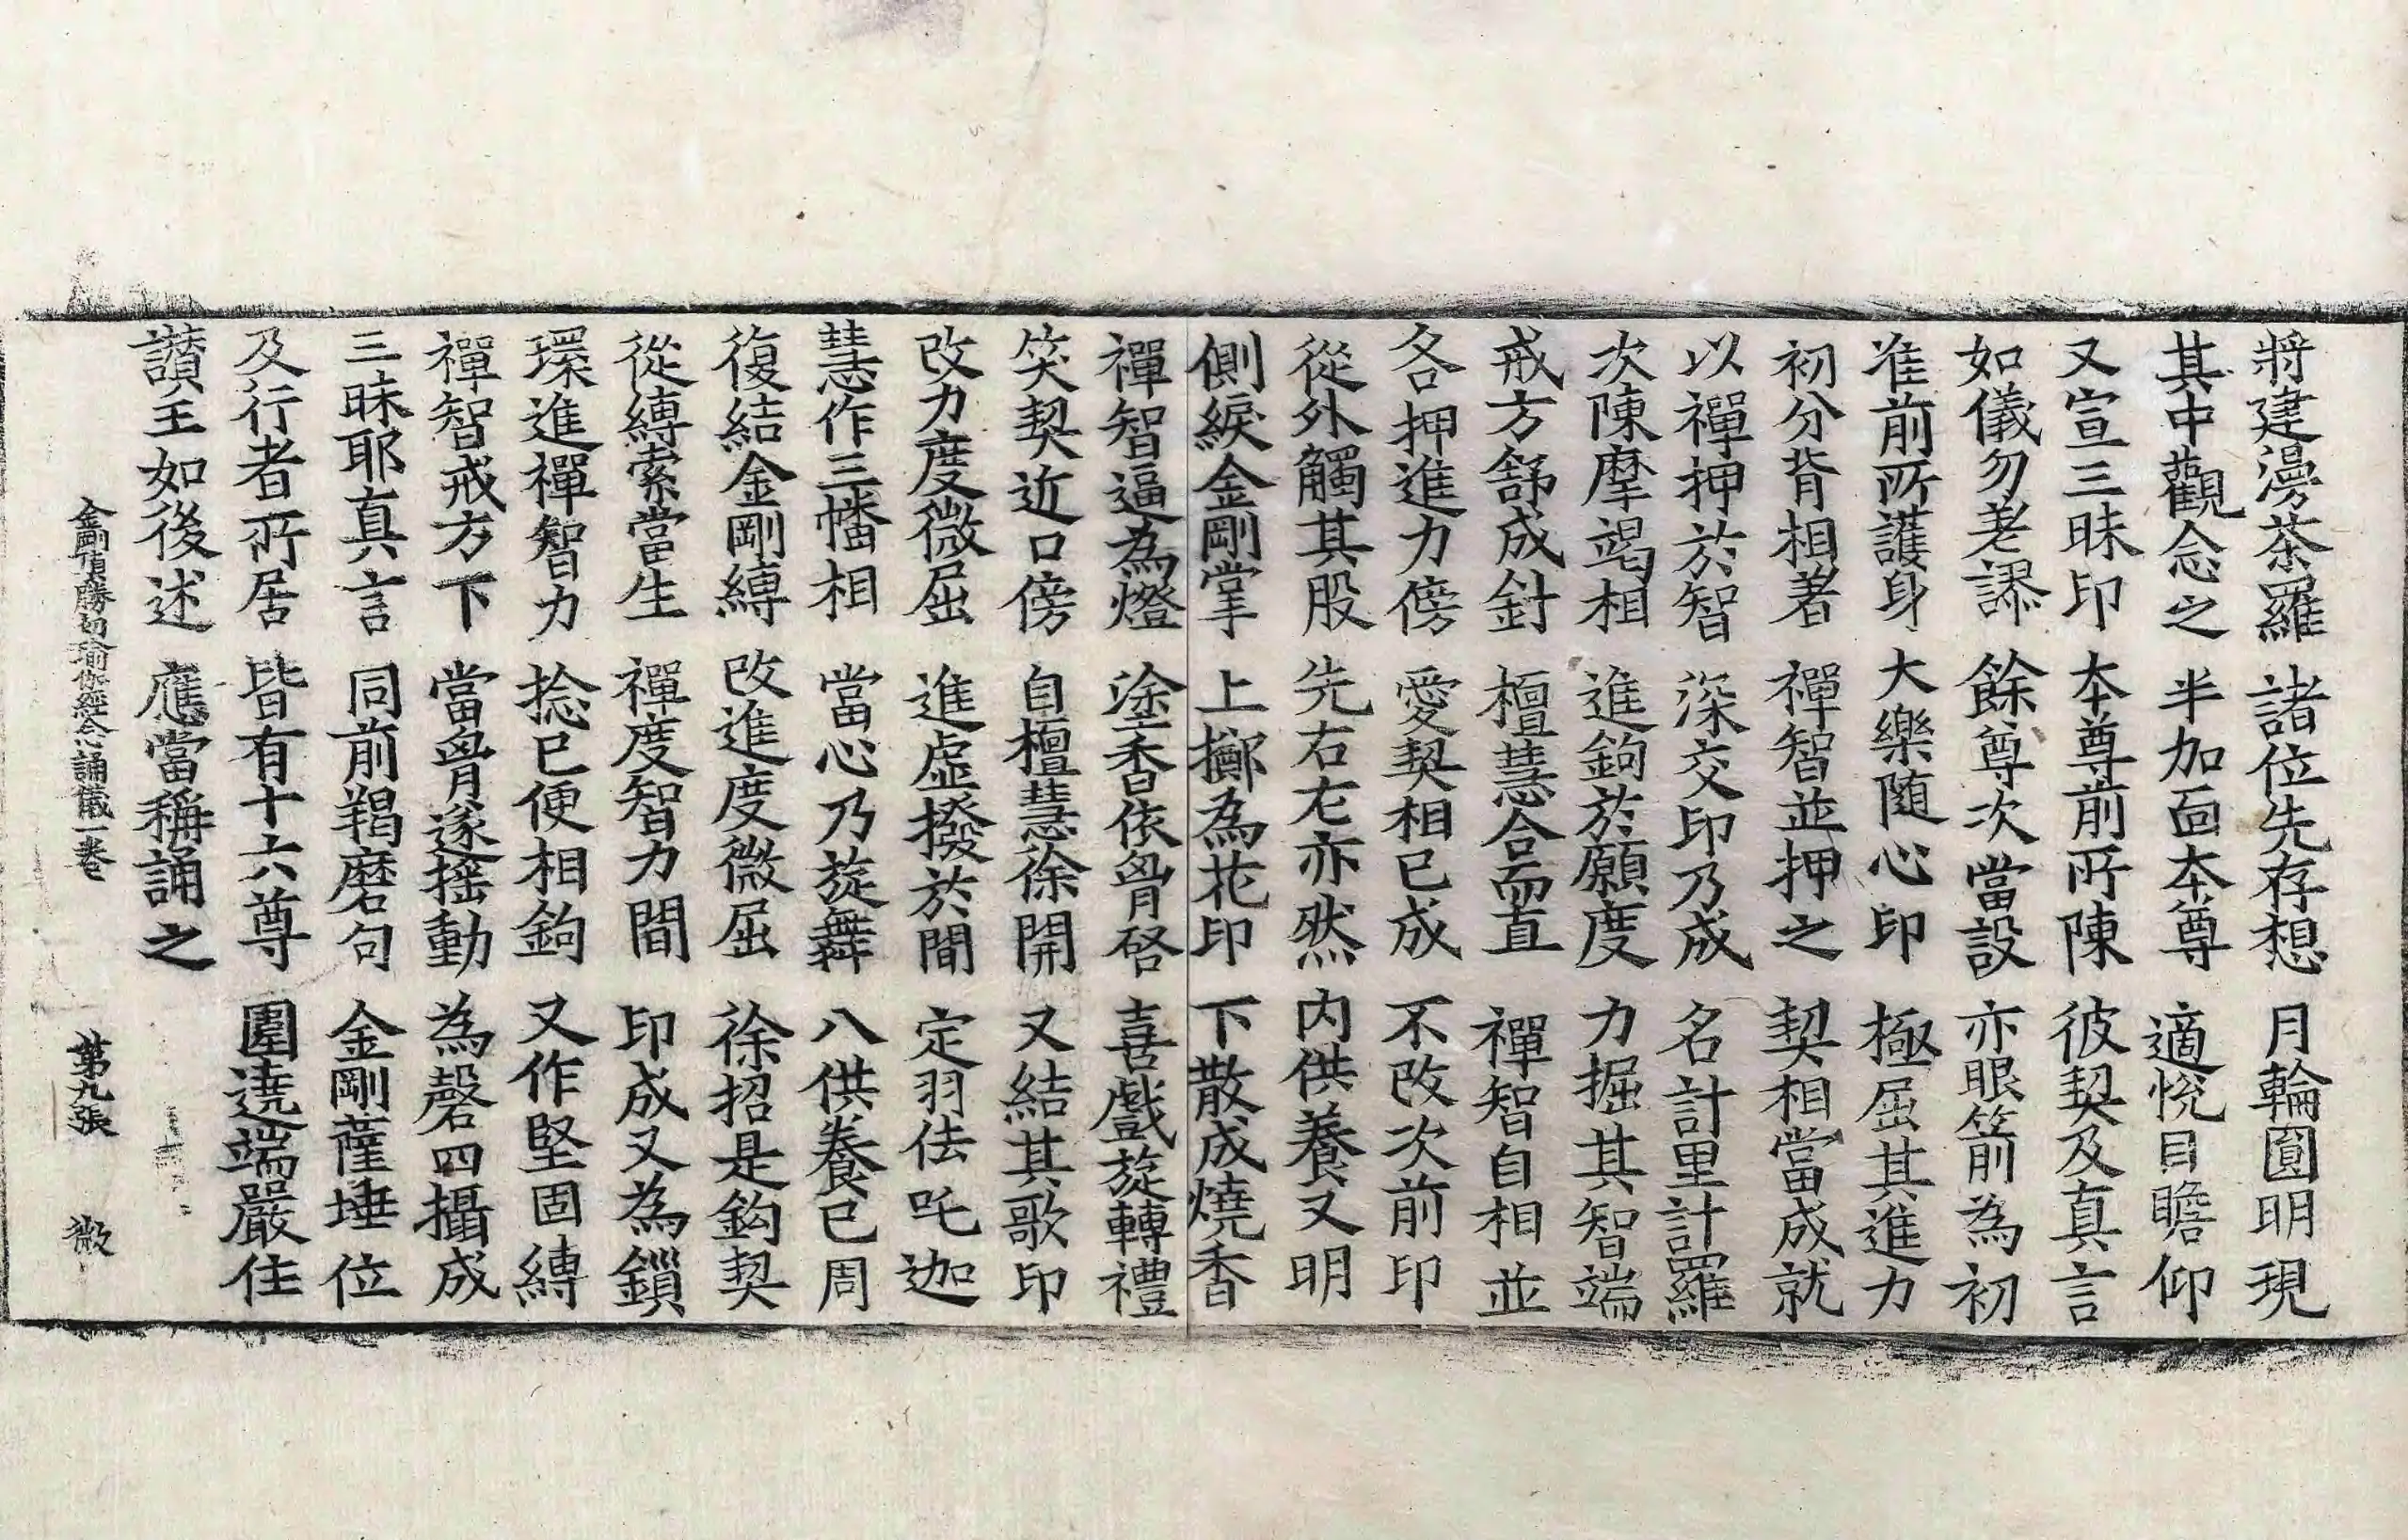 將建漫茶羅　諸位先存想　月輪圓明現
其中觀念之　半加面本尊　適悅目瞻仰
又宣三昧印　本尊前所陳　彼契及真言
如儀勿差謬　餘尊次當設　亦眼箭為初
准前所護身　大樂随心印　極屈其進力
初分背相著　禪智並押之　契相當成就
以禪押於智　深交印乃成　名計里計羅
次陳摩竭相　進鉤於願度　力掘其智端
戒方舒成針　檀慧合而直　禪智自相並
各押進力傍　愛契相已成　不改次前印
從外觸其股　先右左亦然　内供養又明
側綟金剛掌　上擲為花印　下散成燒香
禪智逼為燈　塗香依胷啓　喜戲旋轉禮
笑契近口傍　自檀慧徐開　又結其歌印
改力度微屈　進虛撥於間　定羽佉吒迦
慧作三幡相　當心乃旋舞　八供養已周
復結金剛縛　改進度微屈　徐招是鉤契
從縛索當生　禪度智力間　印成又為鎻
環進禪智力　捻已便相鉤　又作堅固縛
禪智戒方下　當胷遂搖動　為磬四攝成
三昧耶真言　同前羯磨句　金剛薩埵位
及行者所居　皆有十六尊　圍遶端嚴住
讃王如後述　應當稱誦之
金剛頂勝初瑜伽經念誦儀一卷　第九張　㣲